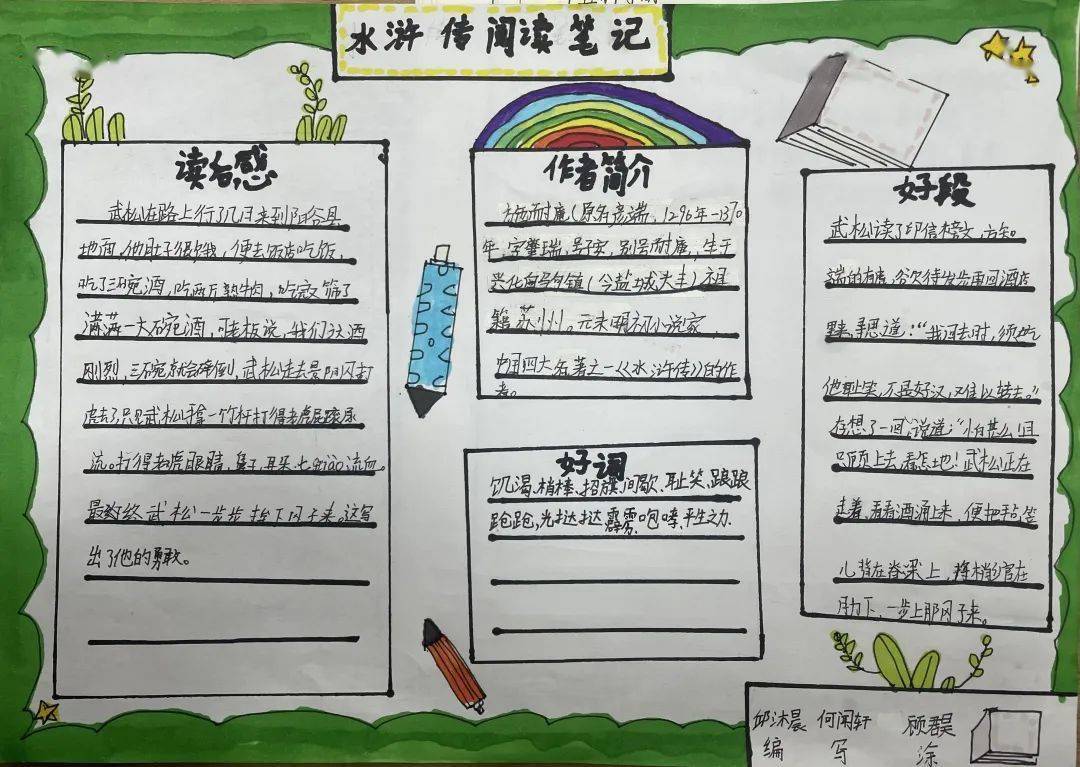 水浒传阅读笔记
读后感
武松在路上行了几日来到阳谷县
地面,他肚子很饿,便去饭店吃饭,
吃了三碗酒,吃两斤熟牛肉,吃家筛了
满满一大碗酒,可老板说,我们这酒
刚烈,三碗就会醉倒,武松走去景阳冈打
虎去了,只见武松拿一竹杆打得老虎屁滚尿
流。打得老虎眼睛,鼻子,耳朵,七qiào流血。
最终 武松一步步 下冈子来。这写
出了他的勇敢。
作者简介
施耐庵(原名彦端、1296年-1370
年,字肇瑞,号子安,别号耐庵,生于
兴化白驹镇(今盐城大丰)祖
籍苏州。元末明初小说家,
中国四大名著之一《水浒传》的作
者。
好词
饥渴、梢棒、招旗、间歇、耻笑、踉踉
跄跄,光挞挞、霹雳、咆哮、平生之力
好段
武松读了印信榜文,方知
端的有虎;欲待发步再回酒店
里来,寻思道:“我回去时,须吃
他耻笑,不是好汉,难以转去。”
存想了一回,说道:“怕甚么,且
只顾上去,看怎地!武松正在
走着,看看酒涌上来,便把毡笠
儿背在脊梁上,将梢棒绾在
肋下,一步上那冈子来。
邱沐晨 何闲轩 顾
编 写 涂